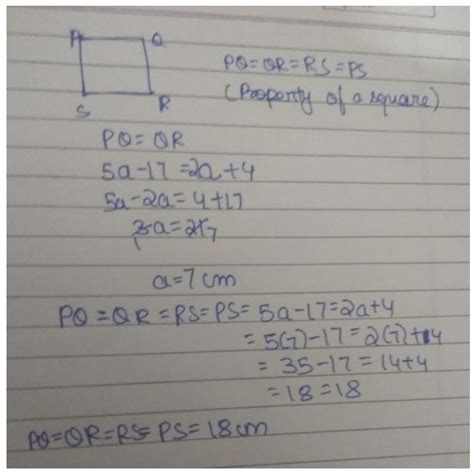 P Q
S R
PQ = QR = RS = PS
(Property of a square)
PQ = QR
5a-17 = 2a+4
5a-2a = 4+17
3a = 21 7
a = 7 cm
PQ = QR = RS = PS = 5a-17 = 2a+4
= 5(7)-17 = 2(7)+4
= 35-17 = 14+4
= 18 = 18
PQ = QR = RS = PS = 18cm